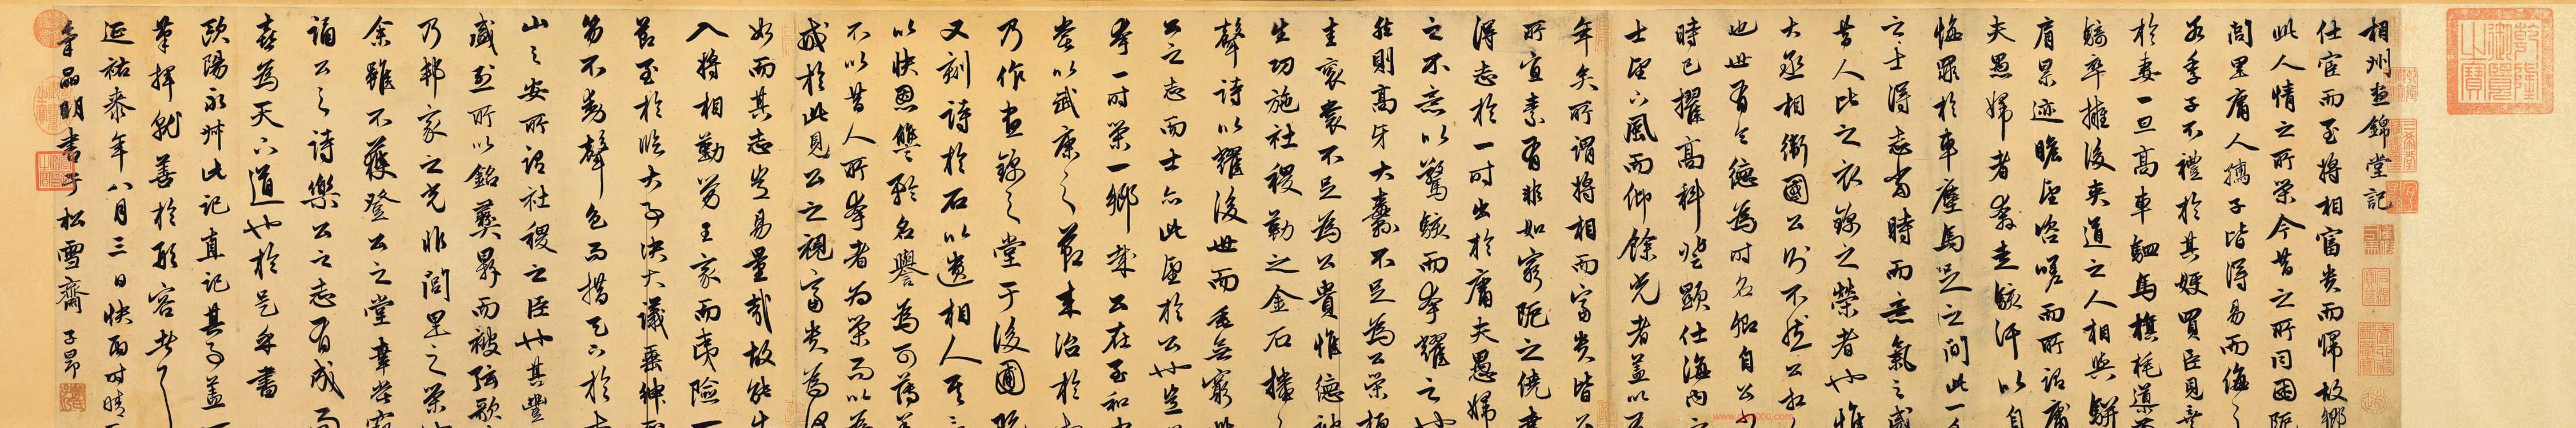 相州晝錦堂記
仕宦而至將相富貴而歸故鄉
此人情之所榮今昔之所同困阨
閭里庸人孺子皆得易而侮之
若季子不禮於其嫂買臣見棄
於妻一旦高車駟馬旗旄導前
騎卒擁後夾道之人相與駢
肩累迹瞻望咨嗟而所謂庸
夫愚婦者奔走駭汗以自
悔罪於車塵馬足之間此一
之士得志當時而意氣之盛
昔人比之衣錦之榮者也惟
大丞相衛國公則不然公相
也世有令德為時名卿自公少
時已擢高科登顯仕海內之
士望下風而仰餘光者蓋亦有
年矣所謂將相而富貴皆公
所宜素有非如窮阨之僥幸
得志於一時出於庸夫愚婦
之不意以驚駭而夸耀之也
然則高牙大纛不足為公榮桓
圭袞裳不足為公貴惟德被
生功施社稷勒之金石播之
聲詩以耀後世而垂無窮此
公之志而士亦此望於公也豈
夸一時榮一鄉哉公在至和中
嘗以武康之節來治於相
乃作晝錦之堂于後圃既
又刻詩於石以遺相人其言
以快恩讎矜名譽為可薄蓋
不以昔人所夸者為榮而以為
戒於此見公之視富貴為何
如而其志豈易量哉故能出
入將相勤勞王家而夷險一
節至於臨大事決大議垂紳正
笏不動聲色而措天下於泰
山之安所謂社稷之臣也其豐
盛烈所以銘彝鼎而被弦歌
乃邦家之光非閭里之榮也
余雖不獲登公之堂幸嘗竊
誦公之詩樂公之志有成而
喜為天下道也於是乎書
歐陽永叔此記直記其事益
筆揮就善於形容者
延祐泰年八月三日快雨時晴
明書于松雪齋 子昂
乾隆御覽之寶